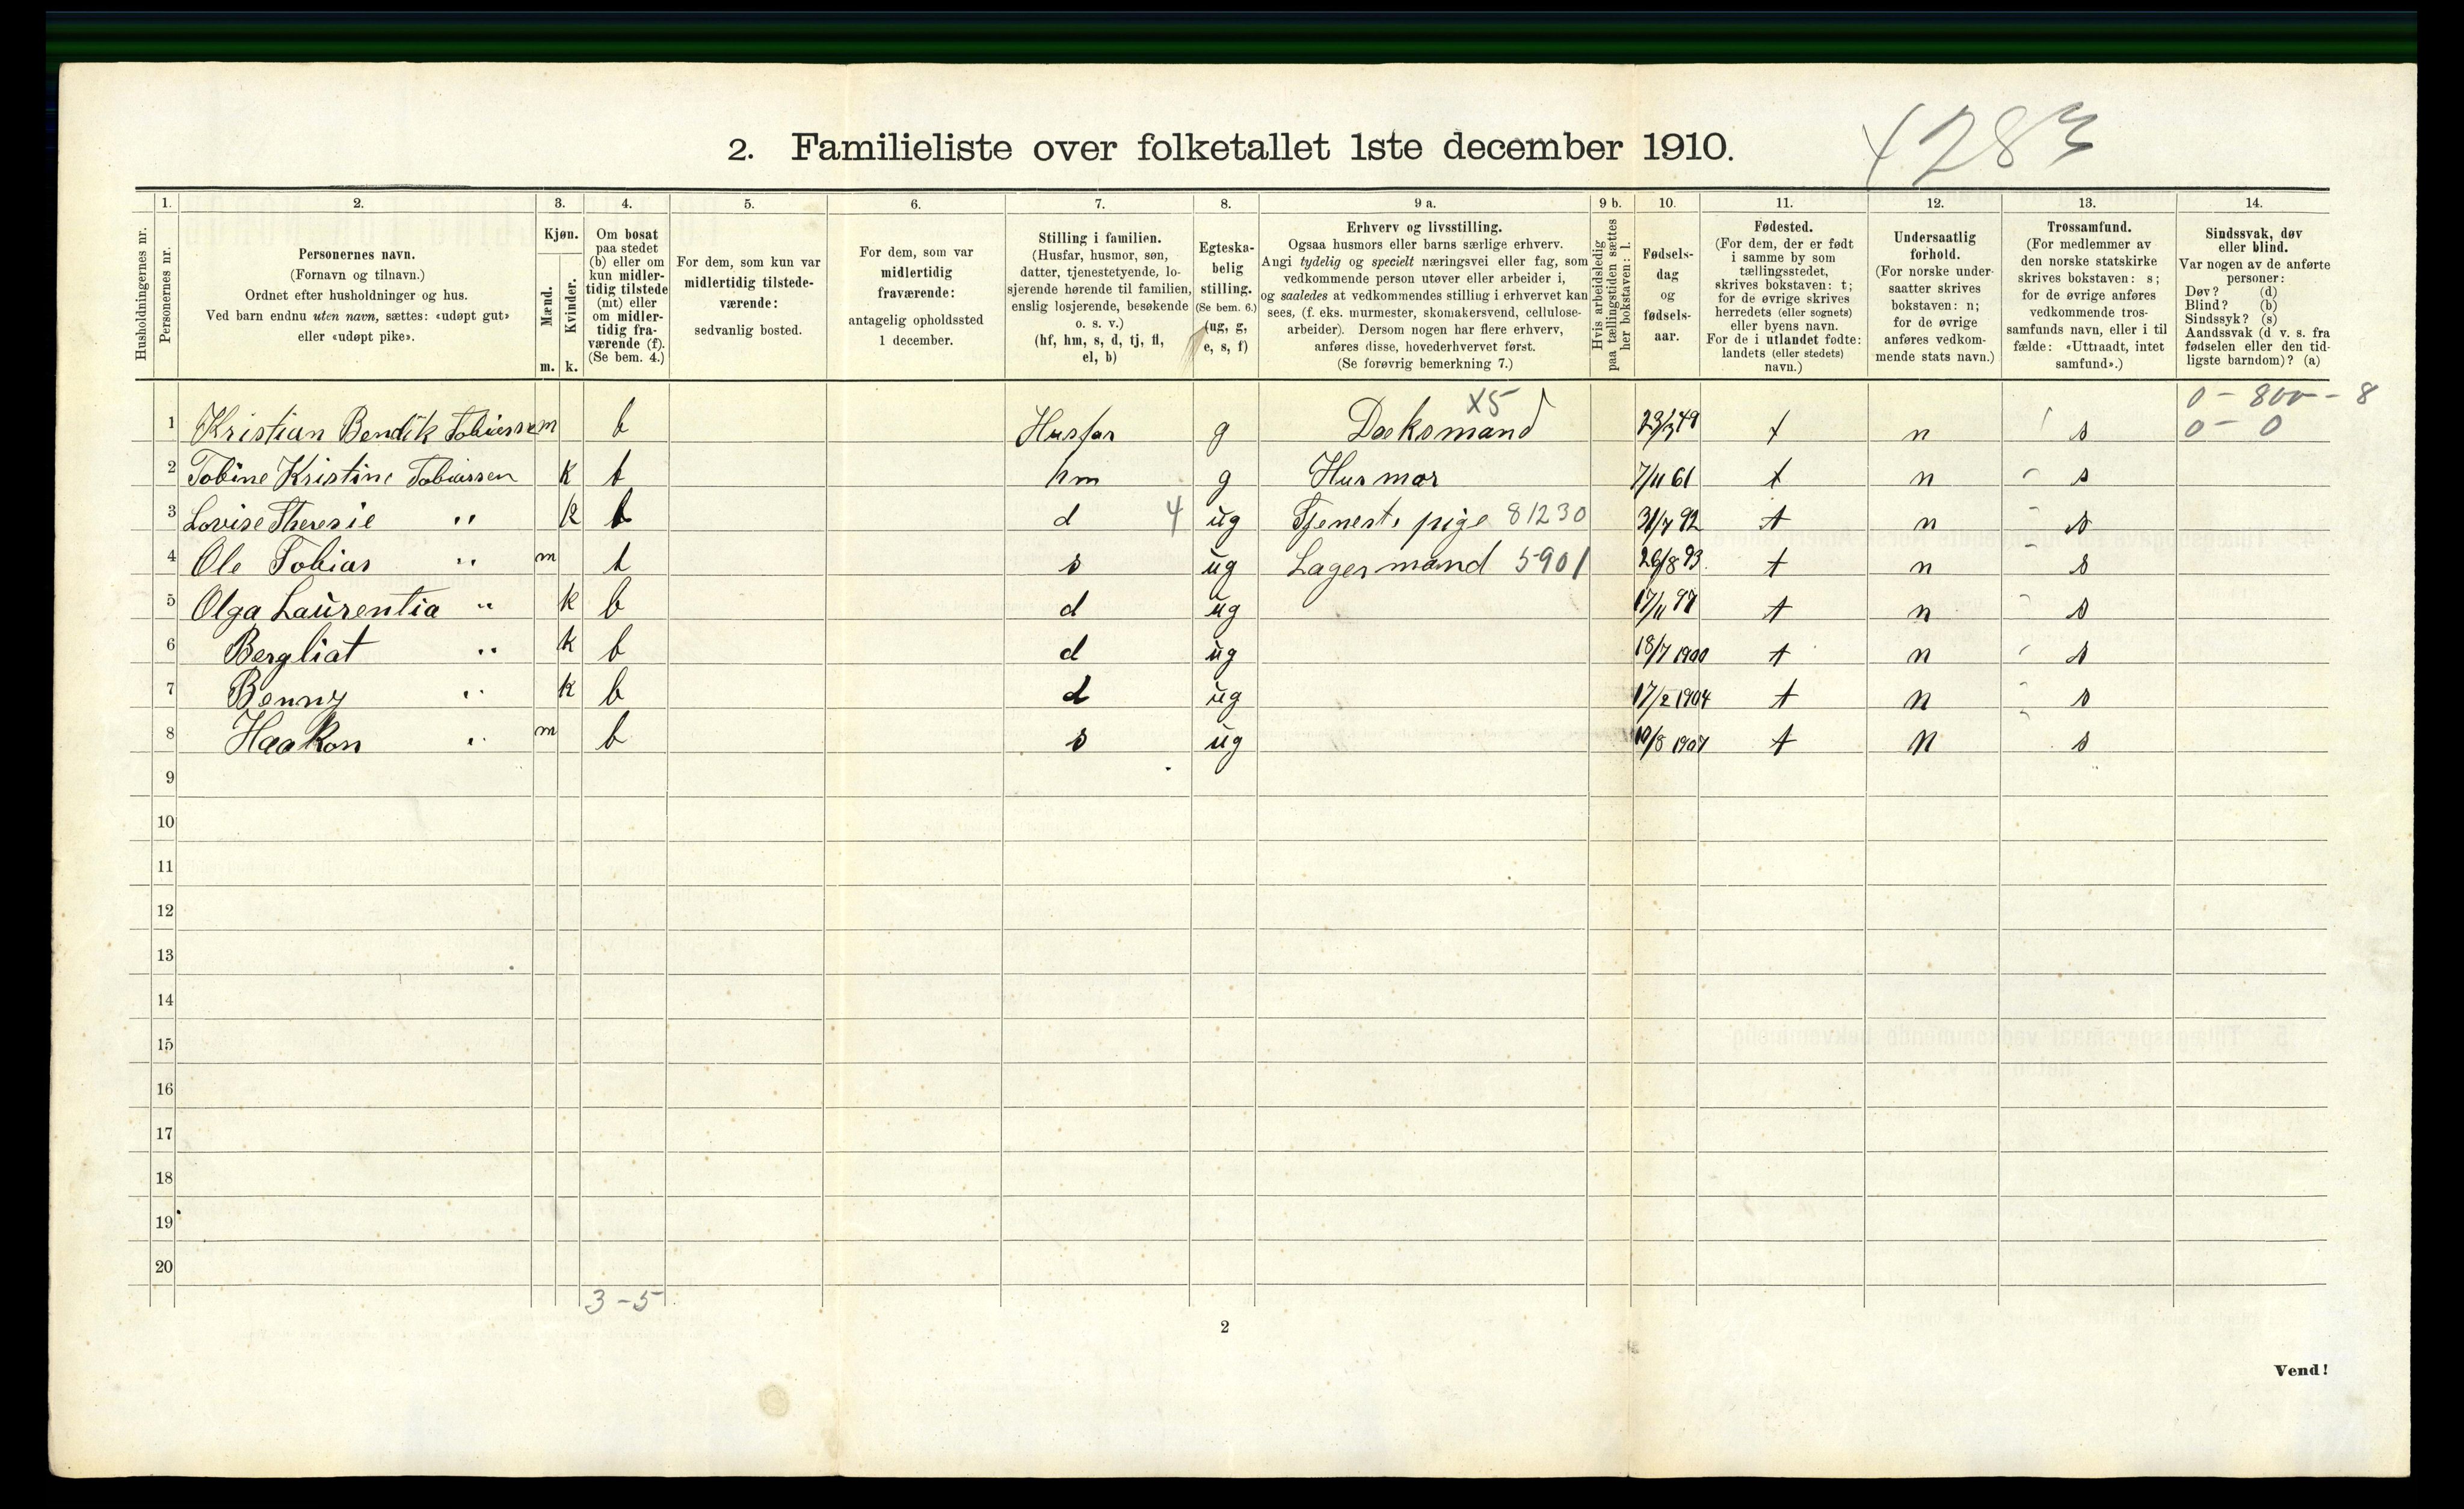 2. Familieliste over folketallet 1ste december 1910.
4283
Husholdningernes nr.
1.
Personernes nr.
2.
Personernes navn.
(Fornavn og tilnavn.)
Ordnet efter husholdninger og hus.
Ved barn endnu uten navn, sættes: «udøpt gut»
eller «udøpt pike».
3.
Kjøn.
Mænd.
Kvinder.
m. k.
4.
Om bosat
paa stedet
(b) eller om
kun midler-
tidig tilstede
(mt) eller
om midler-
tidig fra-
værende (f).
(Se bem. 4.)
5.
For dem, som kun var
midlertidig tilstede-
værende:
sedvanlig bosted.
6.
For dem, som var
midlertidig
fraværende:
antagelig opholdssted
1 december.
7.
Stilling i familien.
(Husfar, husmor, søn,
datter, tjenestetyende, lo-
sjerende hørende til familien,
enslig losjerende, besøkende
o. s. v.)
(hf, hm, s, d, tj, fl,
el, b)
8.
Egteska-
belig
stilling.
(Se bem. 6.)
(ug, g,
e, s, f)
9 a.
Erhverv og livsstilling.
Ogsaa husmors eller barns særlige erhverv.
Angi tydelig og specielt næringsvei eller fag, som
vedkommende person utøver eller arbeider i,
og saaledes at vedkommendes stilling i erhvervet kan
sees, (f. eks. murmester, skomakersvend, cellulose-
arbeider). Dersom nogen har flere erhverv,
anføres disse, hovederhvervet først.
(Se forøvrig bemerkning 7.)
9 b.
Hvis arbeidsledig
paa tællingstiden sættes
her bokstaven: l.
10.
Fødsels-
dag
og
fødsels-
aar.
11.
Fødested.
(For dem, der er født
i samme by som
tællingsstedet,
skrives bokstaven: t;
for de øvrige skrives
herredets (eller sognets)
eller byens navn.
For de i utlandet fødte:
landets (eller stedets)
navn.)
12.
Undersaatlig
forhold.
(For norske under-
saatter skrives
bokstaven: n;
for de øvrige
anføres vedkom-
mende stats navn.)
13.
Trossamfund.
(For medlemmer av
den norske statskirke
skrives bokstaven: s;
for de øvrige anføres
vedkommende tros-
samfunds navn, eller i til
fælde: «Uttraadt, intet
samfund».)
14.
Sindssvak, døv
eller blind.
Var nogen av de anførte
personer:
Døv? (d)
Blind? (b)
Sindssyk? (s)
Aandssvak (d v. s. fra
fødselen eller den tid-
ligste barndom)? (a)
X5 0 - 800 - 8
1 Kristian Bendik Tobiassen m b Husfar g Dæksmand 23/3 49 t n s 0 - 0
2 Tobine Kristine Tobiassen k b hm g Husmor 7/11 61 t n s
3 Lovise Theresie " k b d 4 ug Tjeneste pige 81230 31/7 92 t n s
4 Ole Tobias " m b s ug Lagermand 5901 26/8 93. t n s
5 Olga Laurentia " k b d ug 17/11 97 t n s
6 Bergliat " k b d ug 18/7 1900 t n s
7 Benny " k b d ug 17/2 1904 t n s
8 Haakon " m b s ug 10/8 1907 t n s
9
10
11
12
13
14
15
16
17
18
19
20
3 - 5
2
Vend!